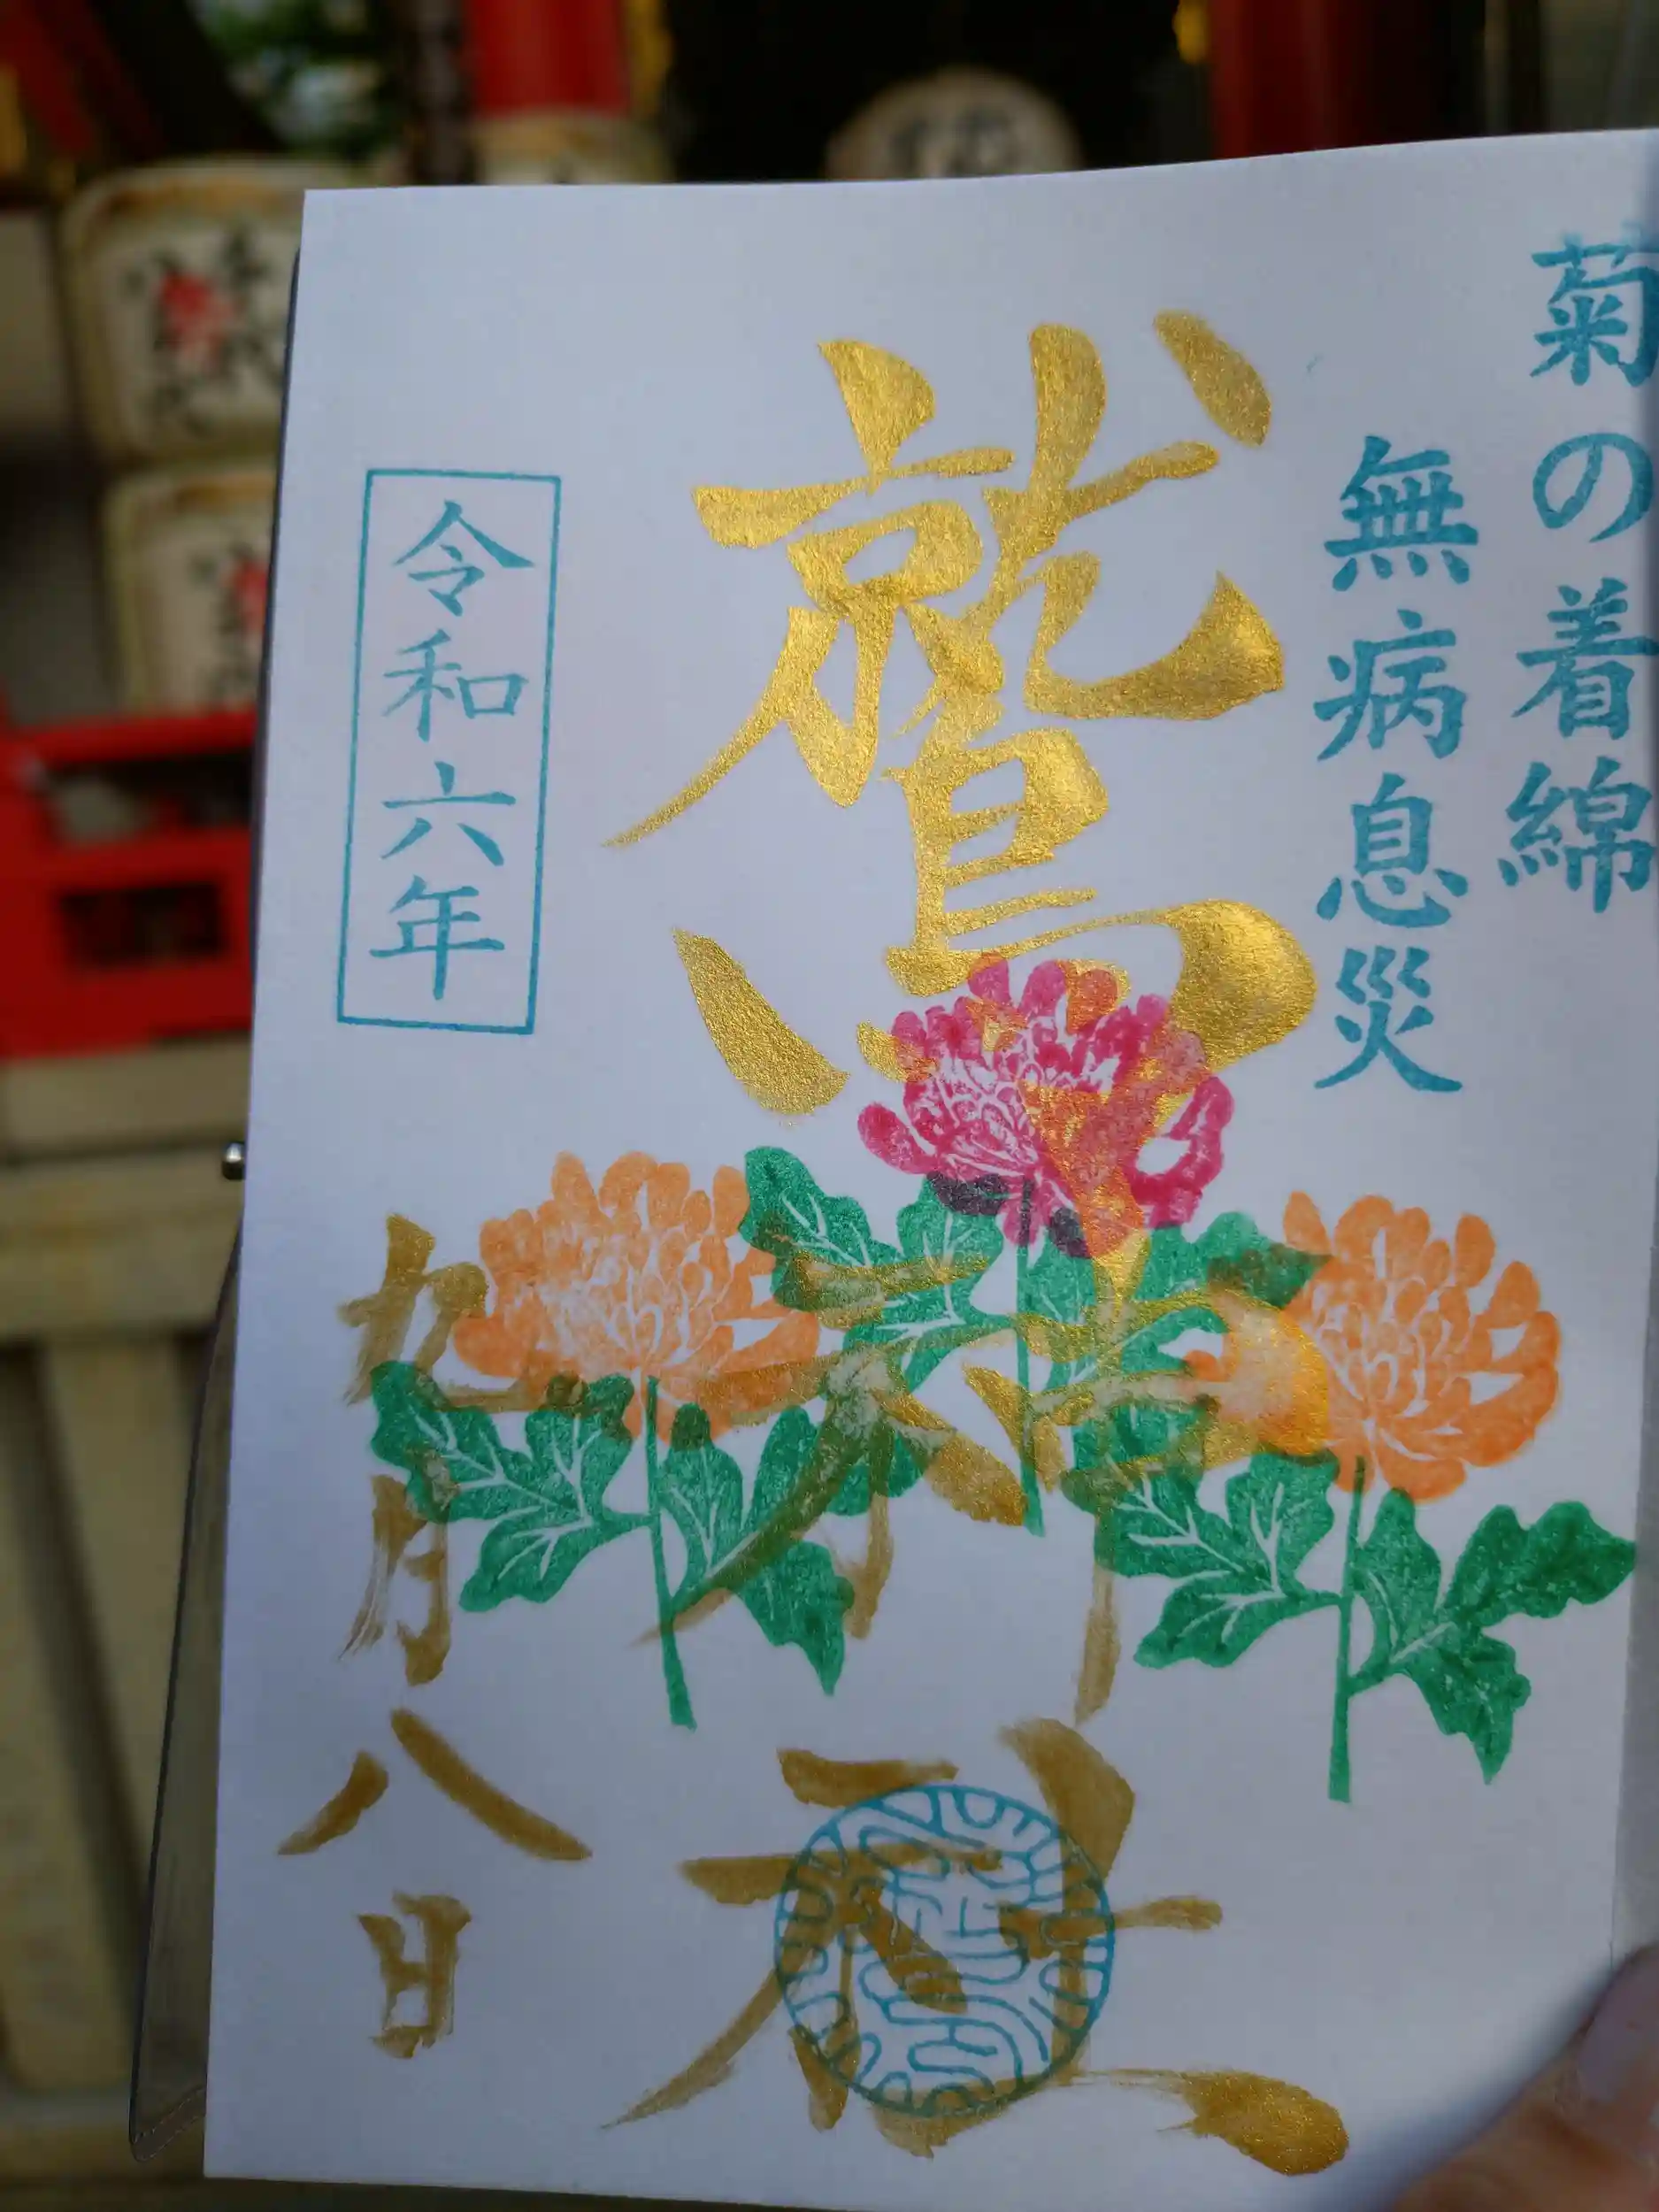 菊の着綿
無病息災
鷲神社
令和六年
九月八日